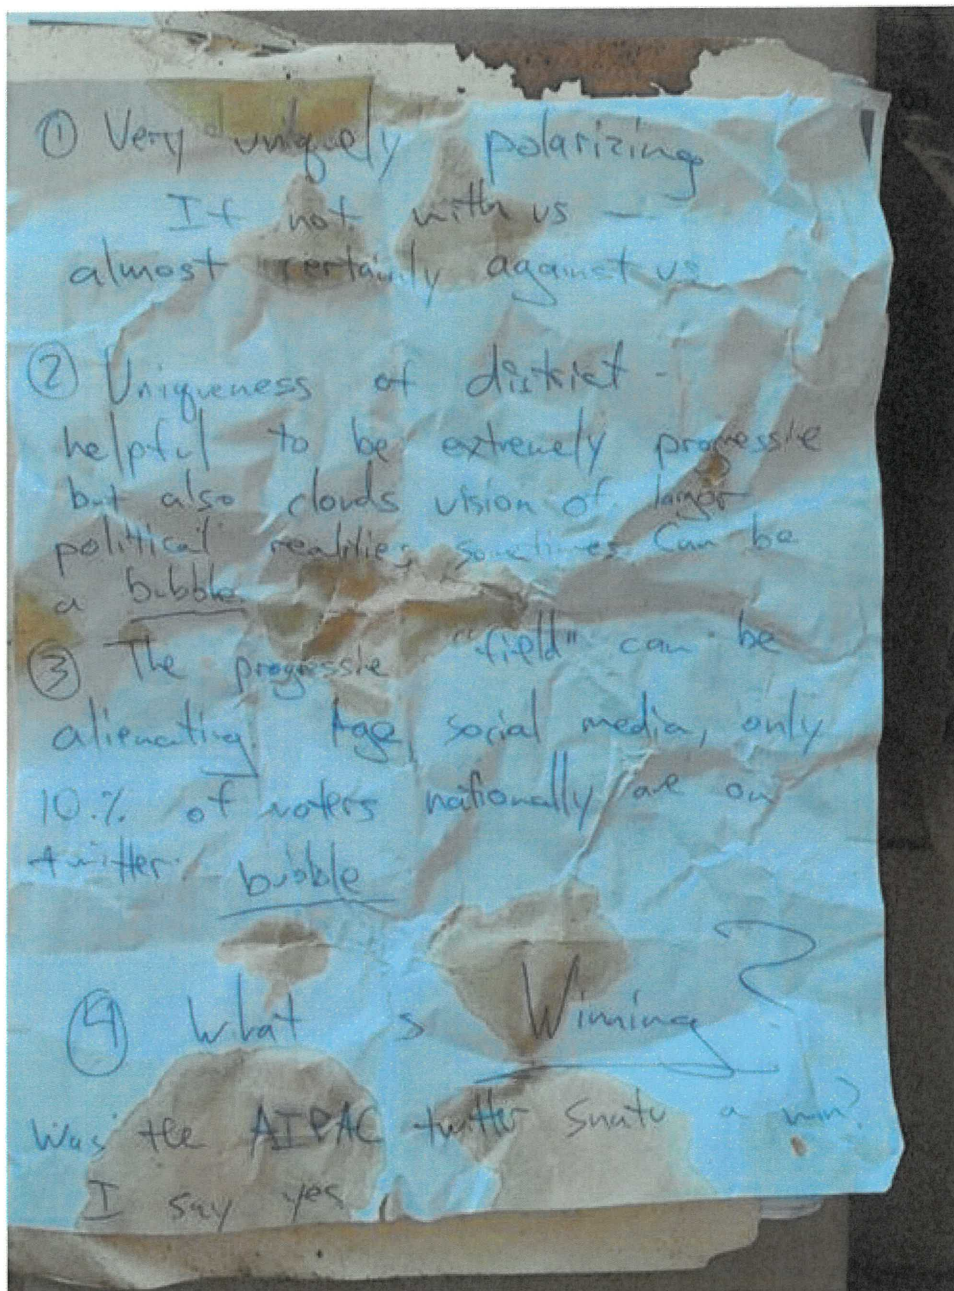 ① Very uniquely polarizing
If not with us —
almost certainly against us
② Uniqueness of district -
helpful to be extremely progressive
but also clouds vision of larger
political realities sometimes. Can be
a bubble
③ The progressive "field" can be
alienating. Age, social media, only
10% of voters nationally are on
twitter. bubble
④ What is Winning?
Was the AIPAC twitter a win?
I say yes